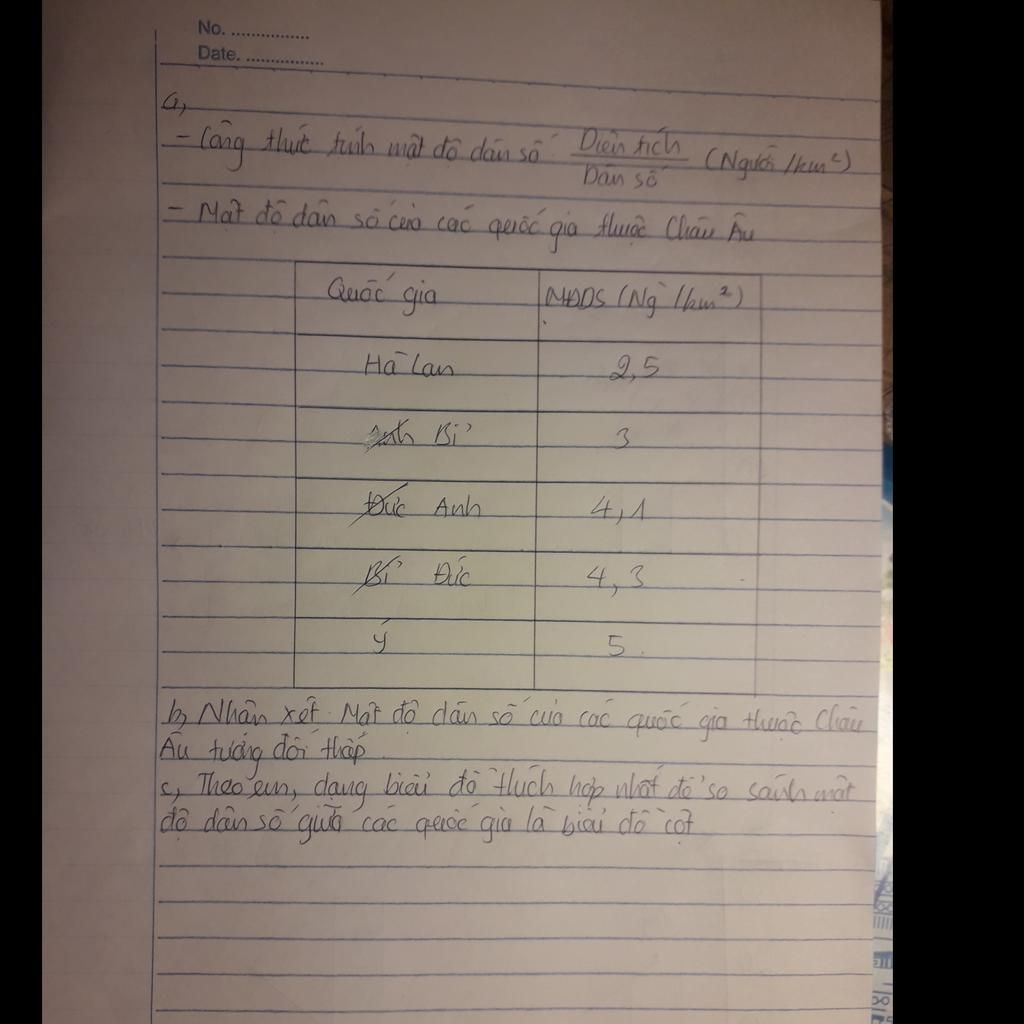 No. ................
Date. ................
a,
- Công thức tính mật độ dân số: Diện tích / Dân số (Người/km²)
- Mật độ dân số của các quốc gia thuộc Châu Âu
Quốc gia MĐDS (Ng`/km²)
Hà Lan 2,5
Anh Bỉ 3
Đức Anh 4,1
Bỉ Đức 4,3
Ý 5
b, Nhận xét: Mật độ dân số của các quốc gia thuộc Châu
Âu tương đối thấp
c, Theo em, dạng biểu đồ thích hợp nhất để so sánh mật
độ dân số giữa các quốc gia là biểu đồ cột